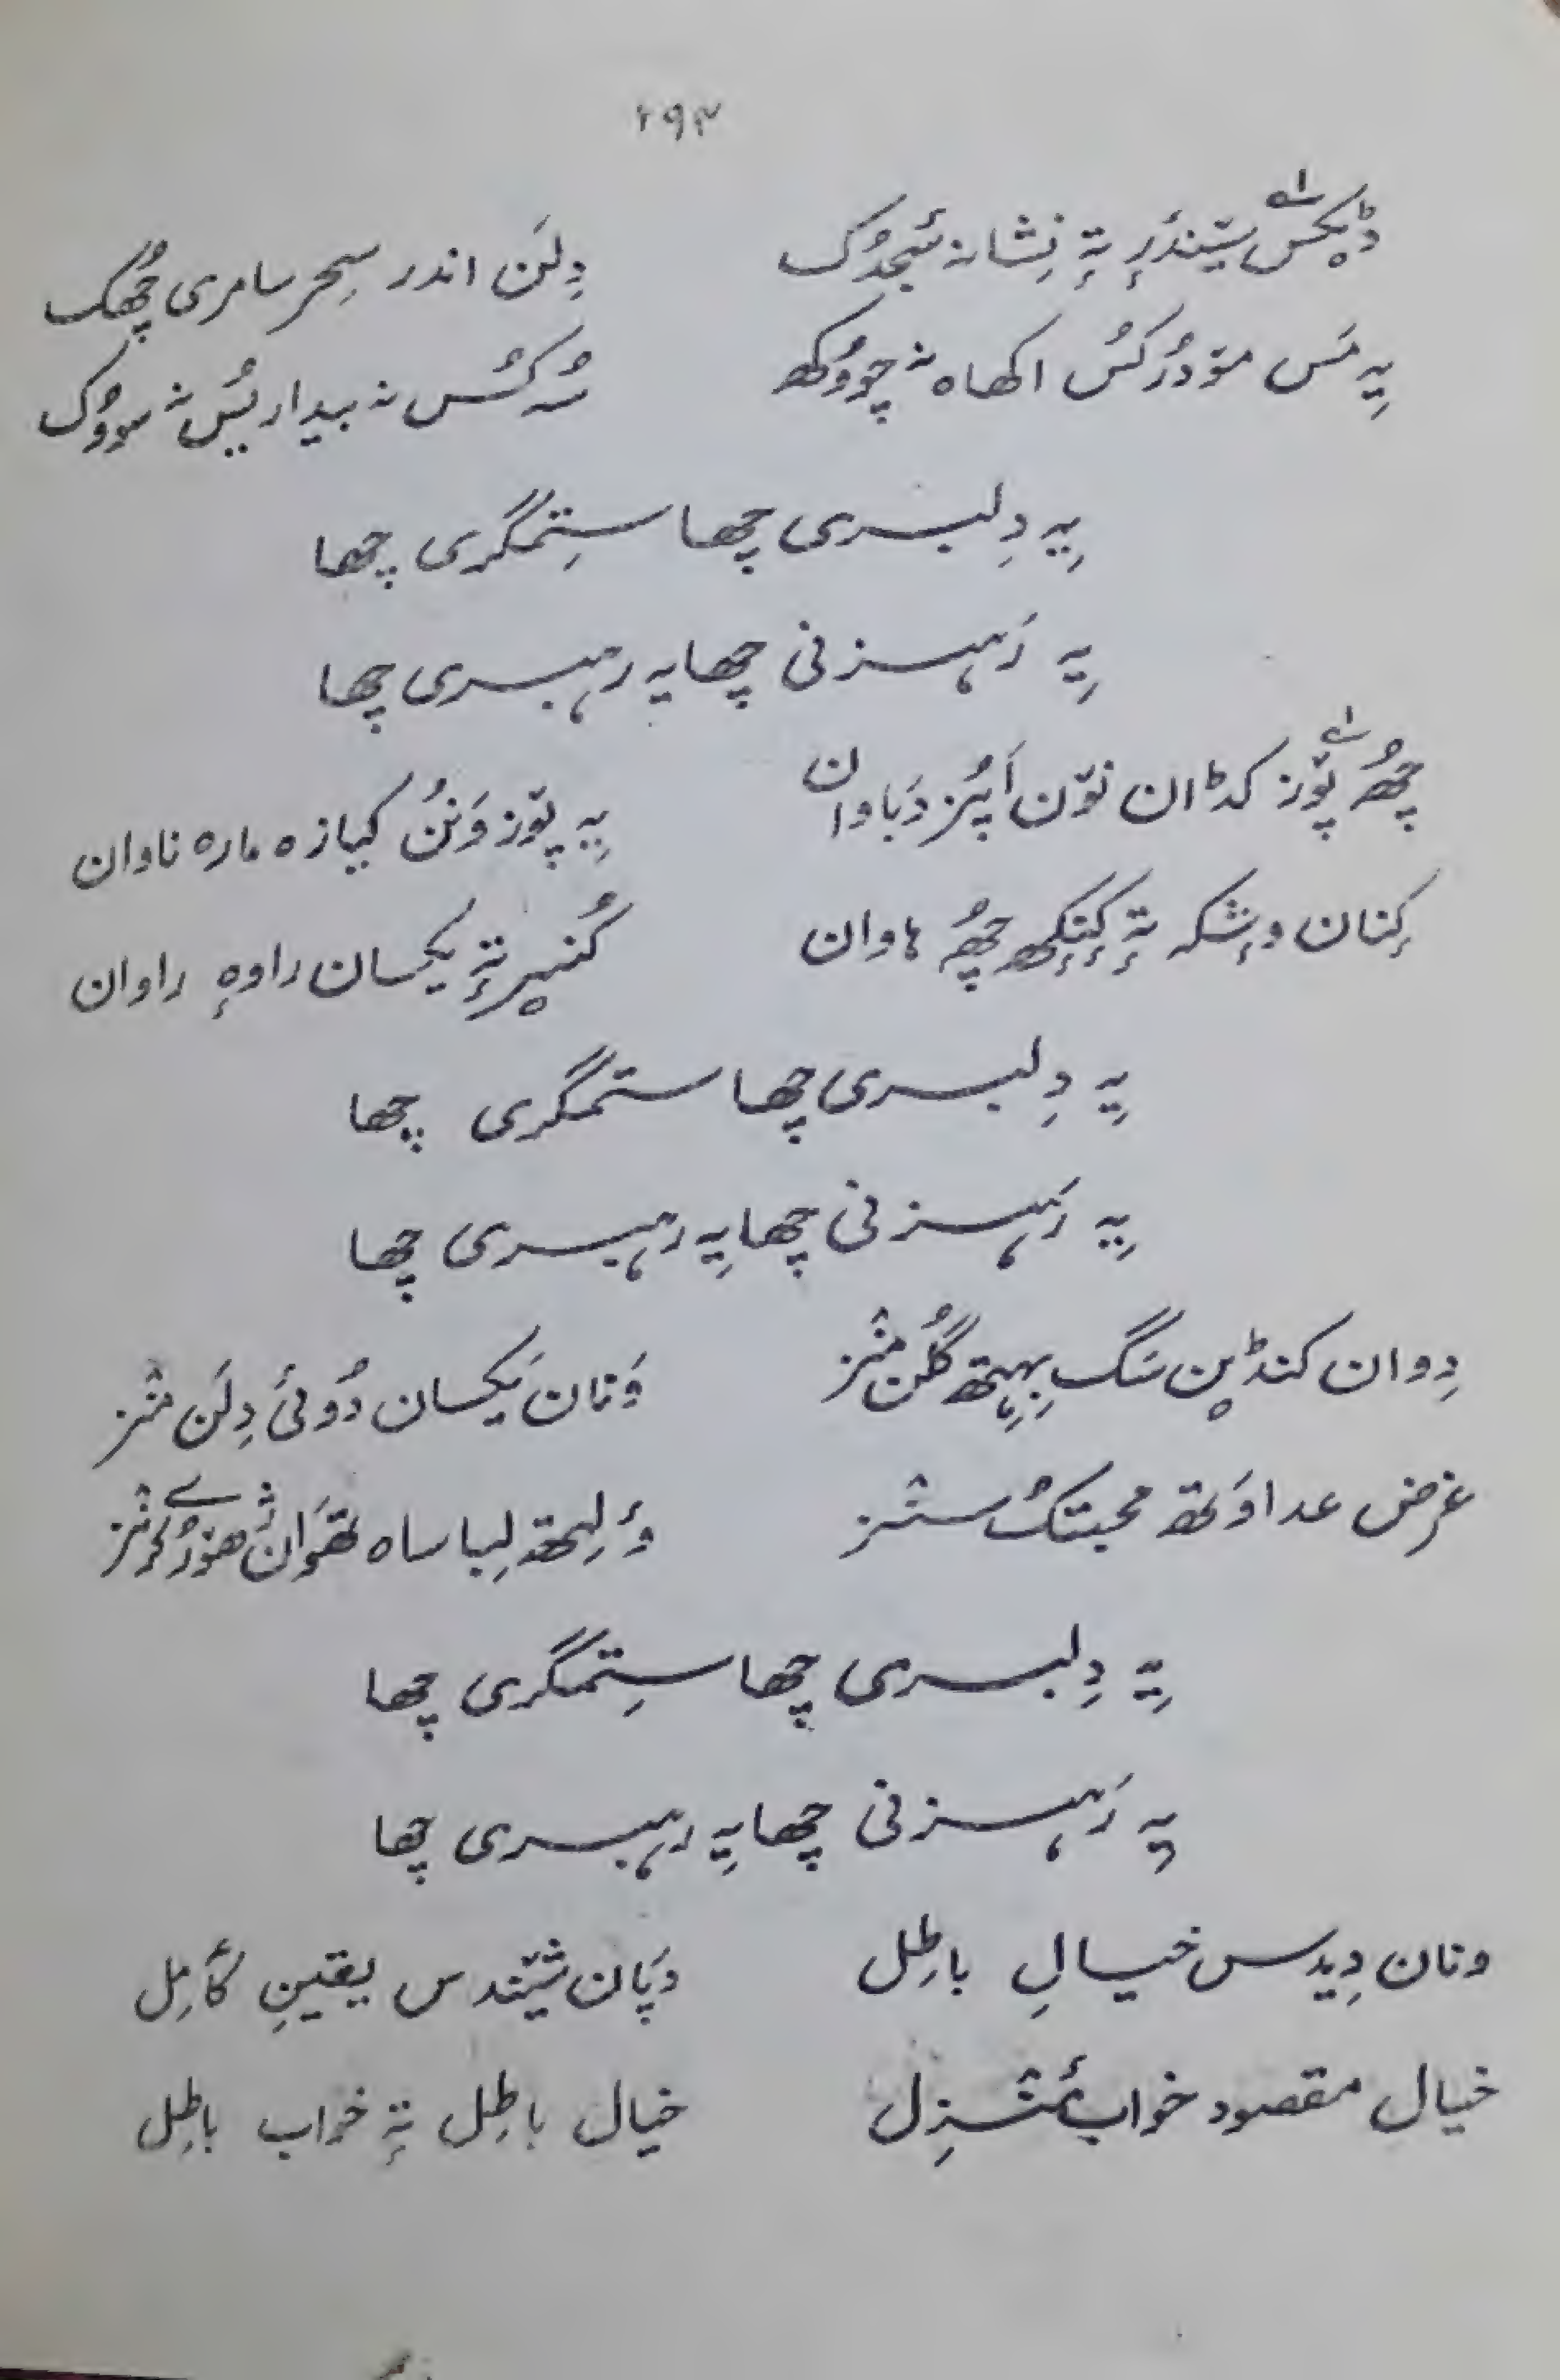 ۲۹۳
ڈیکس تہٕ نِشانہ سُجدُک دِلَن اندر سِحر سامری چھُک
یہِ مَس موٚدُرکُس اکھاہ نہ چووُکھ سُہ کُس نہ بیدار یُس نہ سووُک
یہِ دِلبری چھا ستِمگری چھا
یہِ رَہزنی چھا یہ رہبری چھا
چھُے پوٚز کڈان نوٚن اَپُز دَباوان یہِ پوٚز وَنُن کیازہ مارہ ناوان
کِنان وِشکہ تہٕ کِنِکھ چھُہ ہاوان کُنیر تہٕ یکسان راوہٕ راوان
یہِ دِلبری چھا ستمگری چھا
یہِ رَہزنی چھا یہِ رہبری چھا
دِوان کنڈین سَگ بِہِتھ گُلن منٛز وَنان یَکسان دُوئی دِلَن منٛز
غرض عداوَتھ محبتُک سنٛز وٕلِتھ لِباساہ تھَوان
یہِ دِلبری چھا ستِمگری چھا
یہِ رَہزنی چھا یہِ رہبری چھا
ونان دِیدس خیالِ باطِل دَپان شیٚندس یقینِ کٲمِل
خیال مقصود خوابِ منٛزِل خیال باطِل تہٕ خواب باطِل